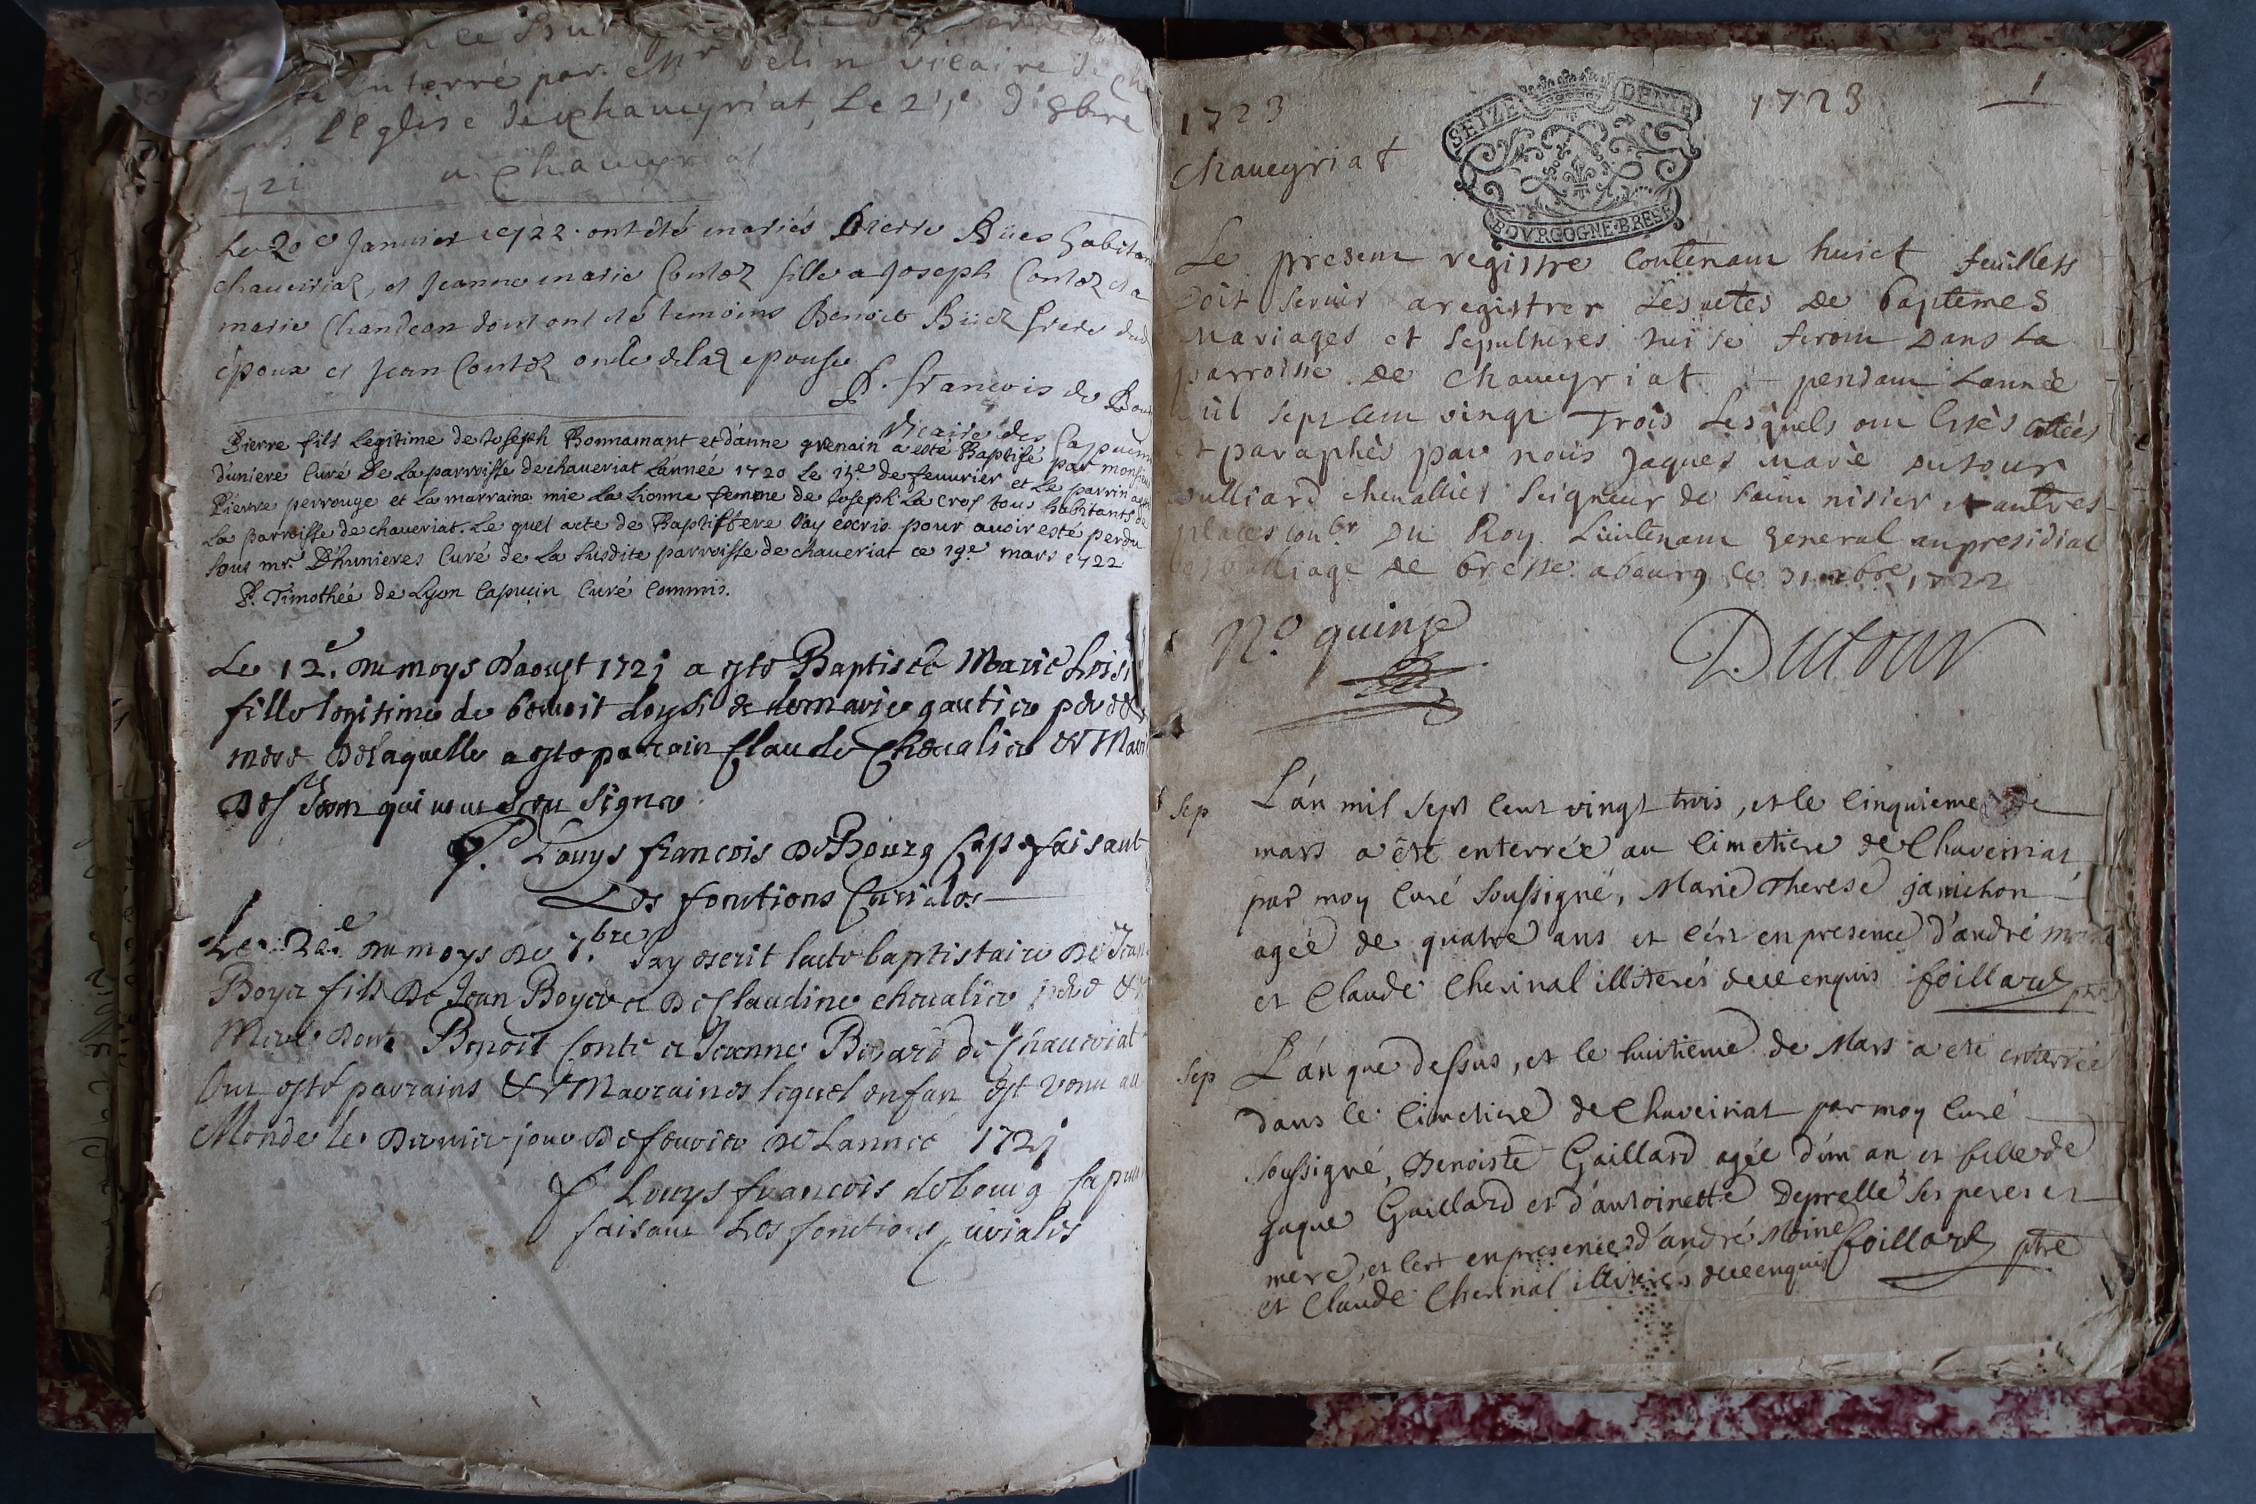 enterré par Mr vicaire de
l'Eglise de chaueyriat, Le 21e d'8bre
a chaueyriat
Le 20e Janvier 1722 ont été mariés Pierre Büer habitan
chaueiriaz, et Jeanne marie Contoz fille a Joseph Contoz et a
marie Chandean dont ont été temoins Benoit Büer frere dud
époux et Jean Contoz oncle de lad epouse
P. francois de Bour
Vicaire des Capucins
Pierre fils Legitime de Joseph Bonnamant et d'anne grenain a esté Baptisé par monsieur
d'uniere Curé De La parroisse de chaueriat L'année 1720 Le 15e de feuurier et Le parrin a esté
Pierre perrouge et La marraine mie La Lionne femme de Joseph La Cros tous habitants de
La parroisse de chaueriat. Le quel acte de Baptistere J'ay escris pour auoir esté perdu
sous mr. D'hunieres Curé de La susdite parroisse de chaueriat ce 19e mars 1722
P. Timothée de Lyon Capucin Curé Commis.
Le 12e. du moys d'aoust 1721 a esté Baptisée Marie Loisi
fille legitime de benoit Loysi & de marie gautier pere &
mere de laquelle a esté parrain Claude Cheualier & Mar
signer
P. Louys francois de Bourg Cap. faisant
Les fonctions Curiales
Le 22e du moys de 7.bre J'ay escrit lacte baptistaire de Jean
Boyer fils de Jean Boyer et de Claudine cheualier pere &
Mere dont Benoit Conte et Jeanne Berard de Chaueriat
Ont esté parrains & Marraines lequel enfan est venu au
Monde le dernier jour de feurier de Lannee 1721
P Louys francois de bourg Capucin
faisant Les fonctions curiales
1723 1723 1
Chaueyriat
SEIZE DENIE
BOVRGOGNE·BRESE
Le present registre Contenant huict feuillets
Doit seruir a registrer Les actes De baptemes
Mariages et Sepultures qui se feront Dans La
parroisse De Chaueyriat pendant Lannée
Mil Sept Cent vingt Trois Lesquels ont Estés Cottés
et paraphés par nous Jaques marie Dutour
Vulliard cheuallier Seigneur de Saint nisier et autres
places Con.er Du Roy Lieutenant general au presidial
et balliage De bresse a bourg Ce 31 xbre 1722
No. quinze
Dutour
Sep L'an mil Sept Cent vingt trois, et le Cinquieme de
mars a été enterrée au Cimetiere de Chaveiriat
par moy Curé Soussigné, Marie Therese Janichon
agée de quatre ans et c'est en presence d'andré Moine
et Claude Cherinal illiterés de ce enquis foillard ptre
Sep L'an que dessus, et le huitieme de Mars a été enterrée
dans le Cimetiere de Chaveiriat par moy Curé
soussigné, Benoiste Gaillard agée d'un an et fille de
Jaque Gaillard et d'antoinette Deprelle ses peres et
mere, et c'est en presence d'andré Moine
et Claude Cherinal illiterés de ce enquis foillard ptre